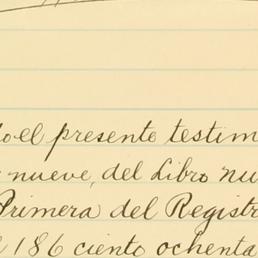 el presente testim
nueve, del Libro nu
Primera del Registr
186 ciento ochenta